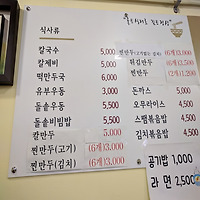 식사류
칼국수 5,000
칼제비 5,000
떡만두국 6,000
유부우동 3,000
돌솥우동 5,500
돌솥비빔밥 5,500
칼만두 5,000
찐만두(고기) (6개)3,000
찐만두(김치) (6개)3,000
(6개)3,000
튀김만두 (6개)3,000
찐만두 (2개)1,200
돈까스 5,000
오무라이스 4,500
스팸볶음밥 4,500
김치볶음밥 4,500
공기밥 1,000
라 면 2,500